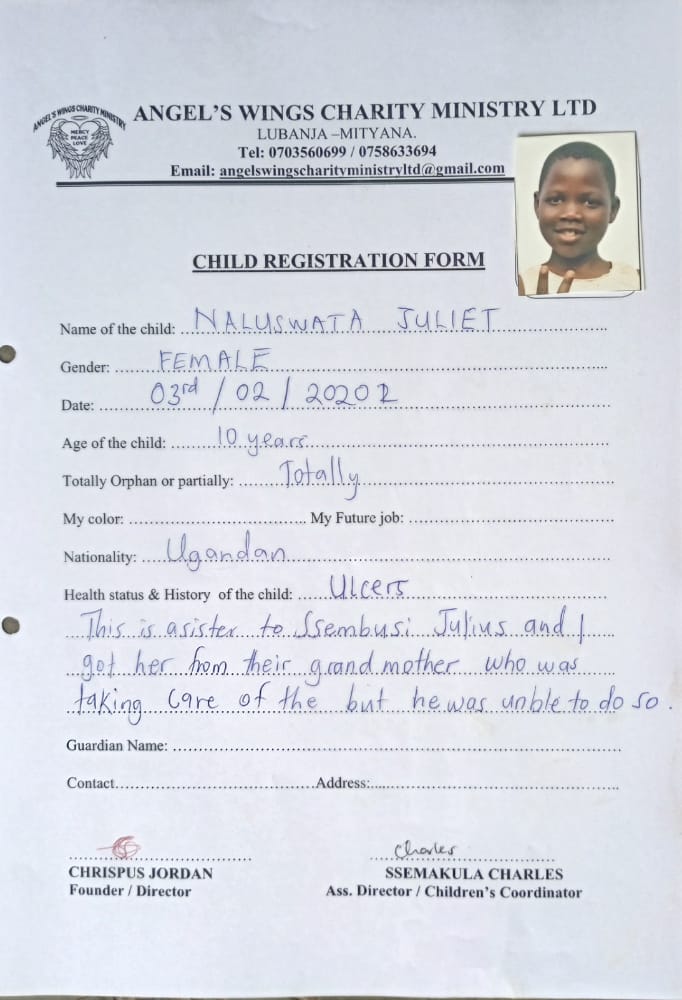 ANGEL'S WINGS CHARITY MINISTRY
MERCY
PEACE
LOVE
ANGEL'S WINGS CHARITY MINISTRY LTD
LUBANJA –MITYANA.
Tel: 0703560699 / 0758633694
Email: angelswingscharityministryltd@gmail.com
CHILD REGISTRATION FORM
Name of the child: NALUSWATA JULIET
Gender: FEMALE
Date: 03rd / 02 / 2020
Age of the child: 10 years
Totally Orphan or partially: Totally
My color: My Future job:
Nationality: Ugandan
Health status & History of the child: Ulcers
This is asister to Ssembusi Julius and I
got her from their grand mother who was
taking care of the but he was unble to do so.
Guardian Name:
Contact Address:
Charles
CHRISPUS JORDAN SSEMAKULA CHARLES
Founder / Director Ass. Director / Children's Coordinator